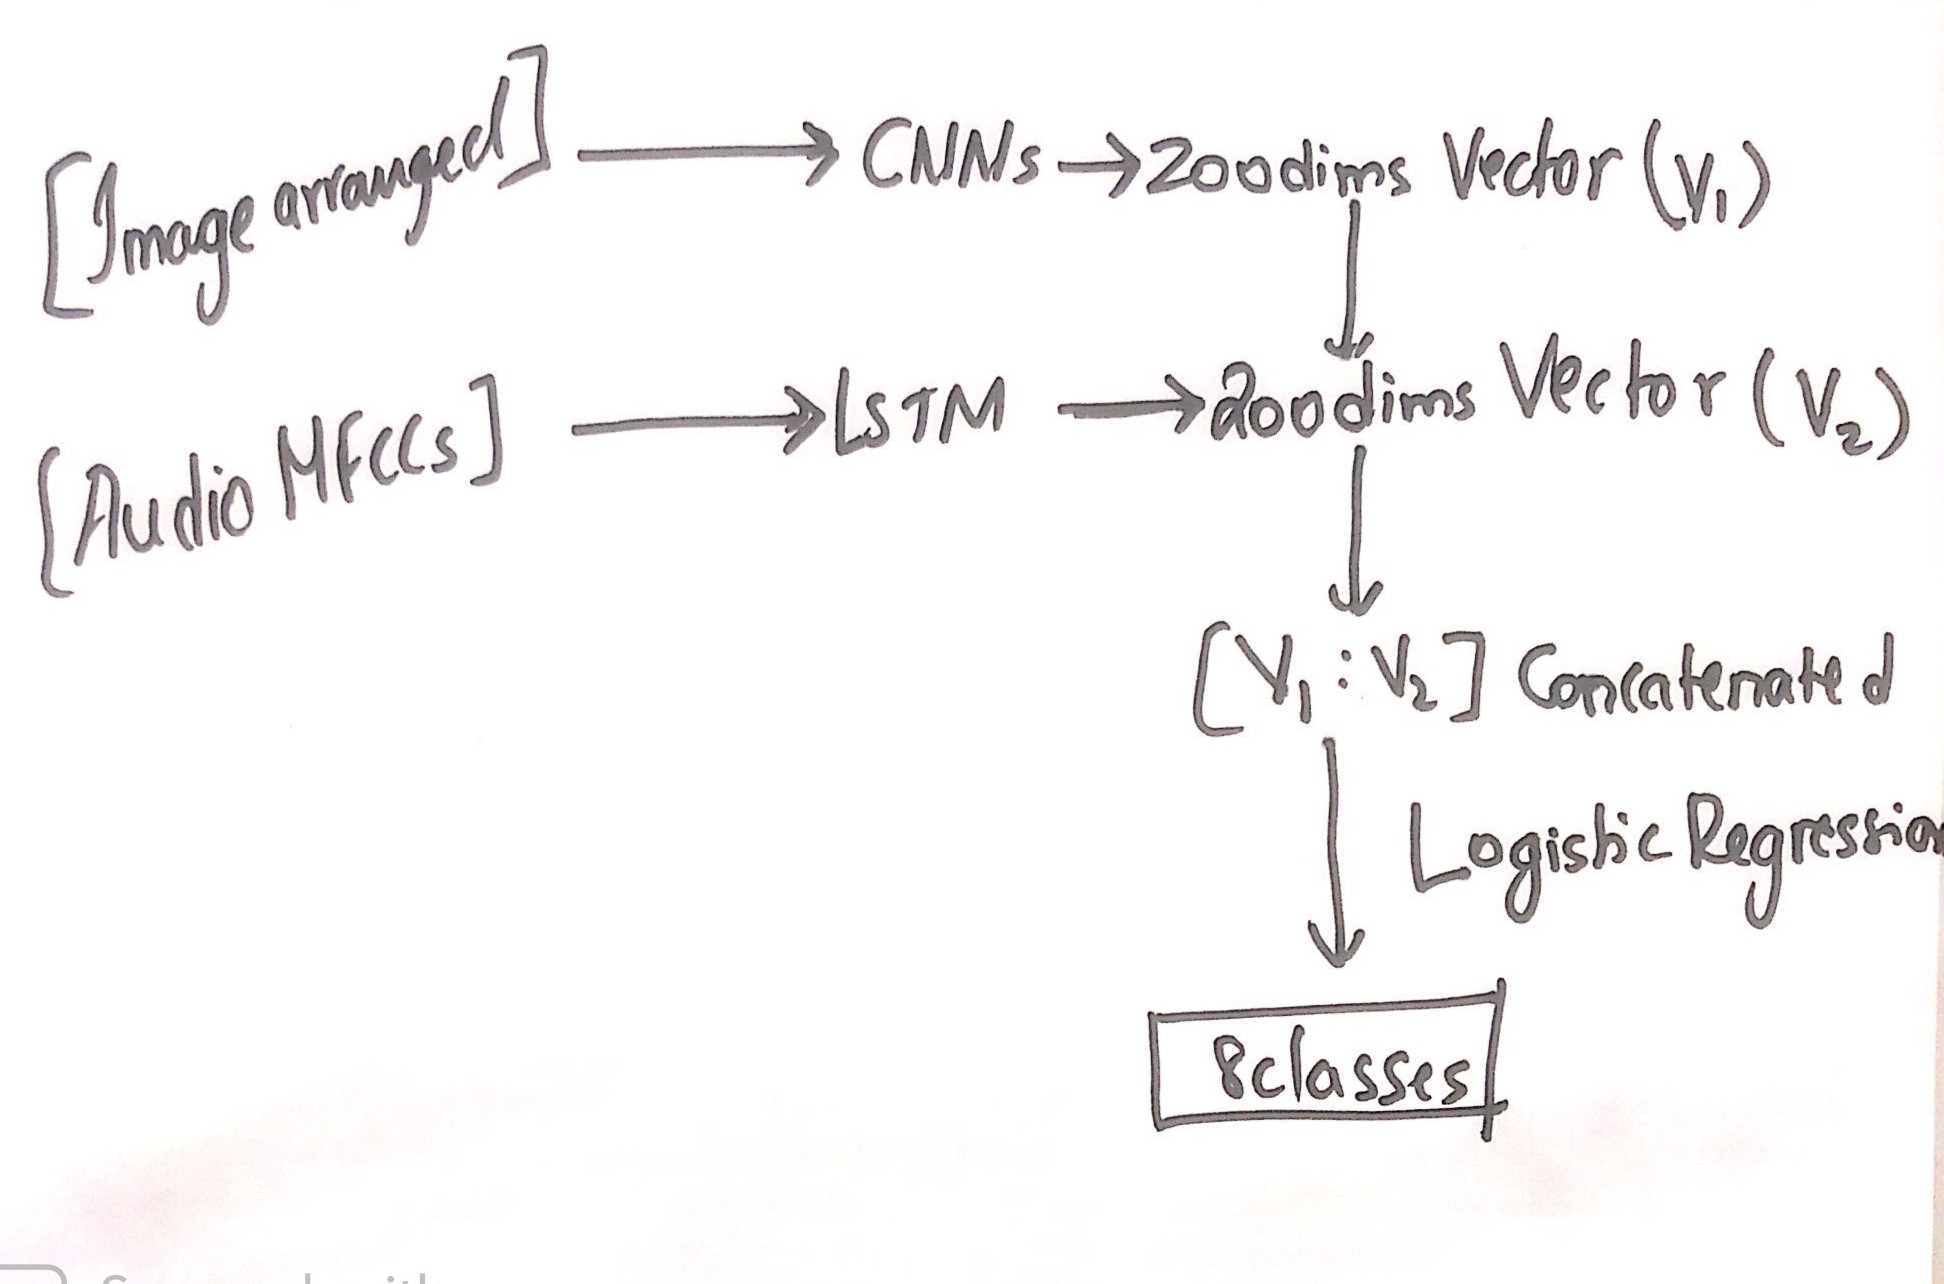 [Image arranged] → CNNs → 200dims Vector (V₁)
[Audio MFCCs] → LSTM → 200dims Vector (V₂)
[V₁ : V₂] Concatenated
Logistic Regression
8classes